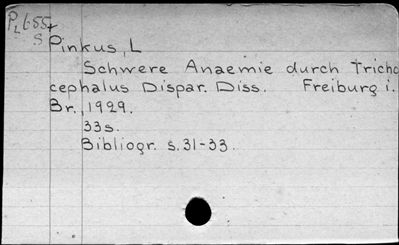 PL655t
S Pinkus, L
Schwere Anaemie durch Tricho
cephalus Dispar. Diss. Freiburg i.
Br., 1929.
33s.
Bibliogr. s. 31-33.